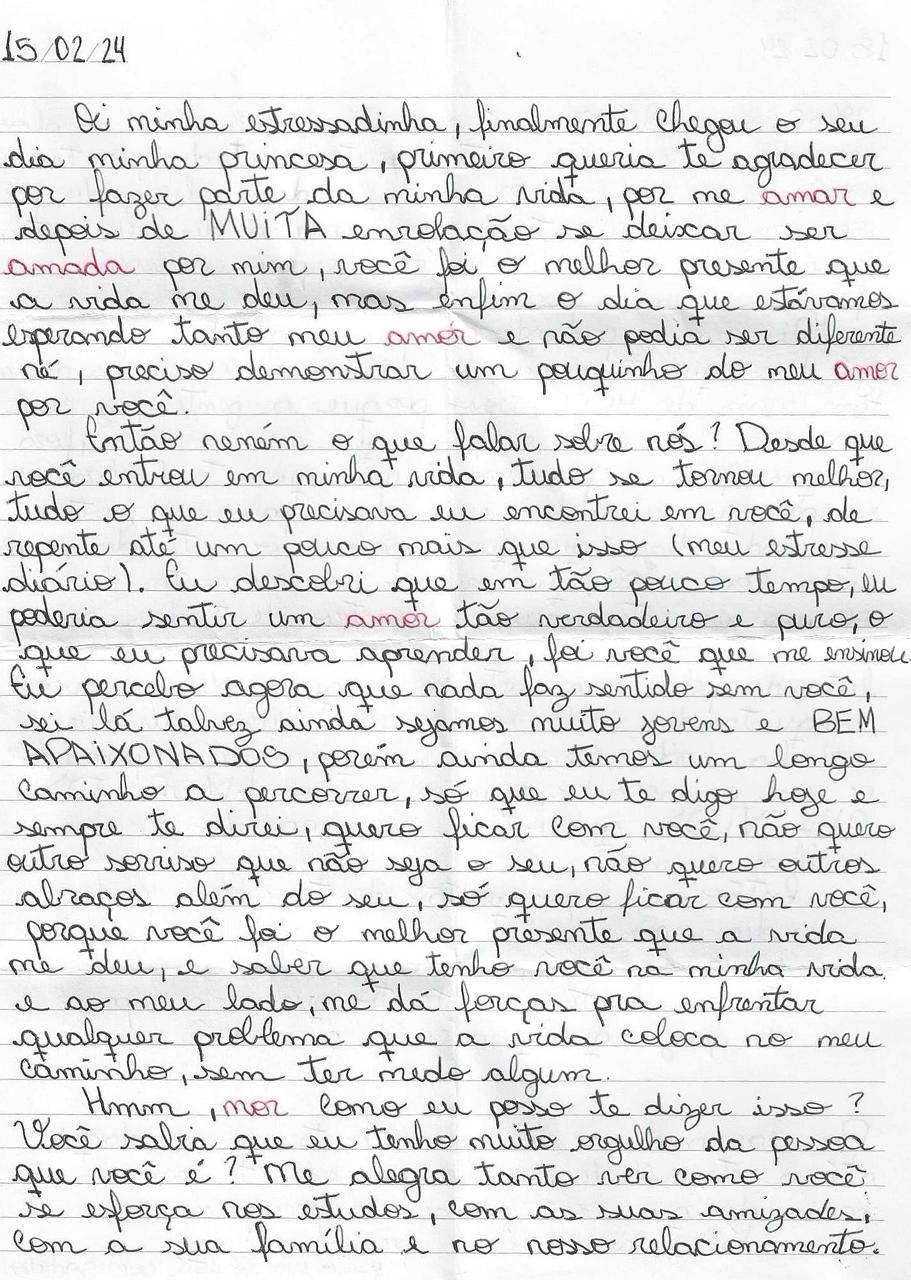 15/02/24
Oi minha estressadinha, finalmente chegou o seu
dia minha princesa, primeiro queria te agradecer
por fazer parte da minha vida, por me amar e
depois de MUITA enrolação se deixar ser
amada por mim, você foi o melhor presente que
a vida me deu, mas enfim o dia que estávamos
esperando tanto meu amor e não podia ser diferente
né, preciso demonstrar um pouquinho do meu amor
por você.
Então neném o que falar sobre nós? Desde que
você entrou em minha vida, tudo se tornou melhor,
tudo o que eu precisava eu encontrei em você, de
repente até um pouco mais que isso (meu estresse
diário). Eu descobri que em tão pouco tempo, eu
poderia sentir um amor tão verdadeiro e puro, o
que eu precisava aprender, foi você que me ensinou.
Eu percebo agora que nada faz sentido sem você,
sei lá talvez ainda sejamos muito jovens e BEM
APAIXONADOS, porém ainda temos um longo
caminho a percorrer, só que eu te digo hoje e
sempre te direi, quero ficar com você, não quero
outro sorriso que não seja o seu, não quero outros
abraços além do seu, só quero ficar com você,
porque você foi o melhor presente que a vida
me deu, e saber que tenho você na minha vida
e ao meu lado, me dá forças pra enfrentar
qualquer problema que a vida coloca no meu
caminho, sem ter medo algum.
Hmm, mor como eu posso te dizer isso?
Você sabia que eu tenho muito orgulho da pessoa
que você é? Me alegra tanto ver como você
se esforça nos estudos, com as suas amizades,
com a sua família e no nosso relacionamento.